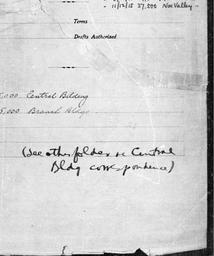 - 11/12/15 27,000 Nov Valley -
Terms
Drafts Authorized
5,000 Central Bilding
5,000 Branch Bldgs
(See other folder re Central
Bldg correspondence)